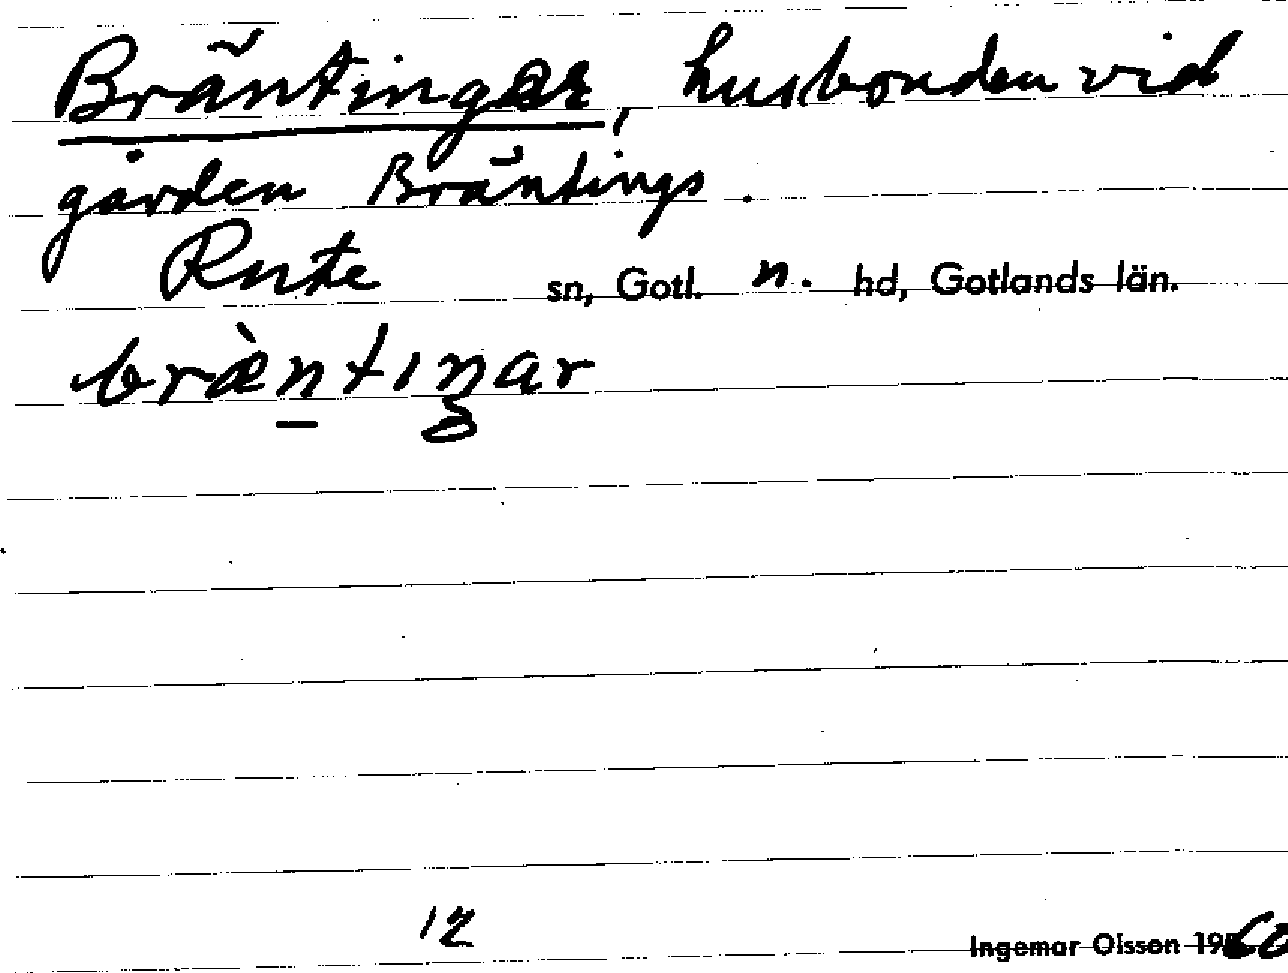 Bräntingar, husbonden vid
gården Bräntings.
Rute sn, Gotl. n. hd, Gotlands län.
bræ̀ntıŋar
12
Ingemar Olsson 1960